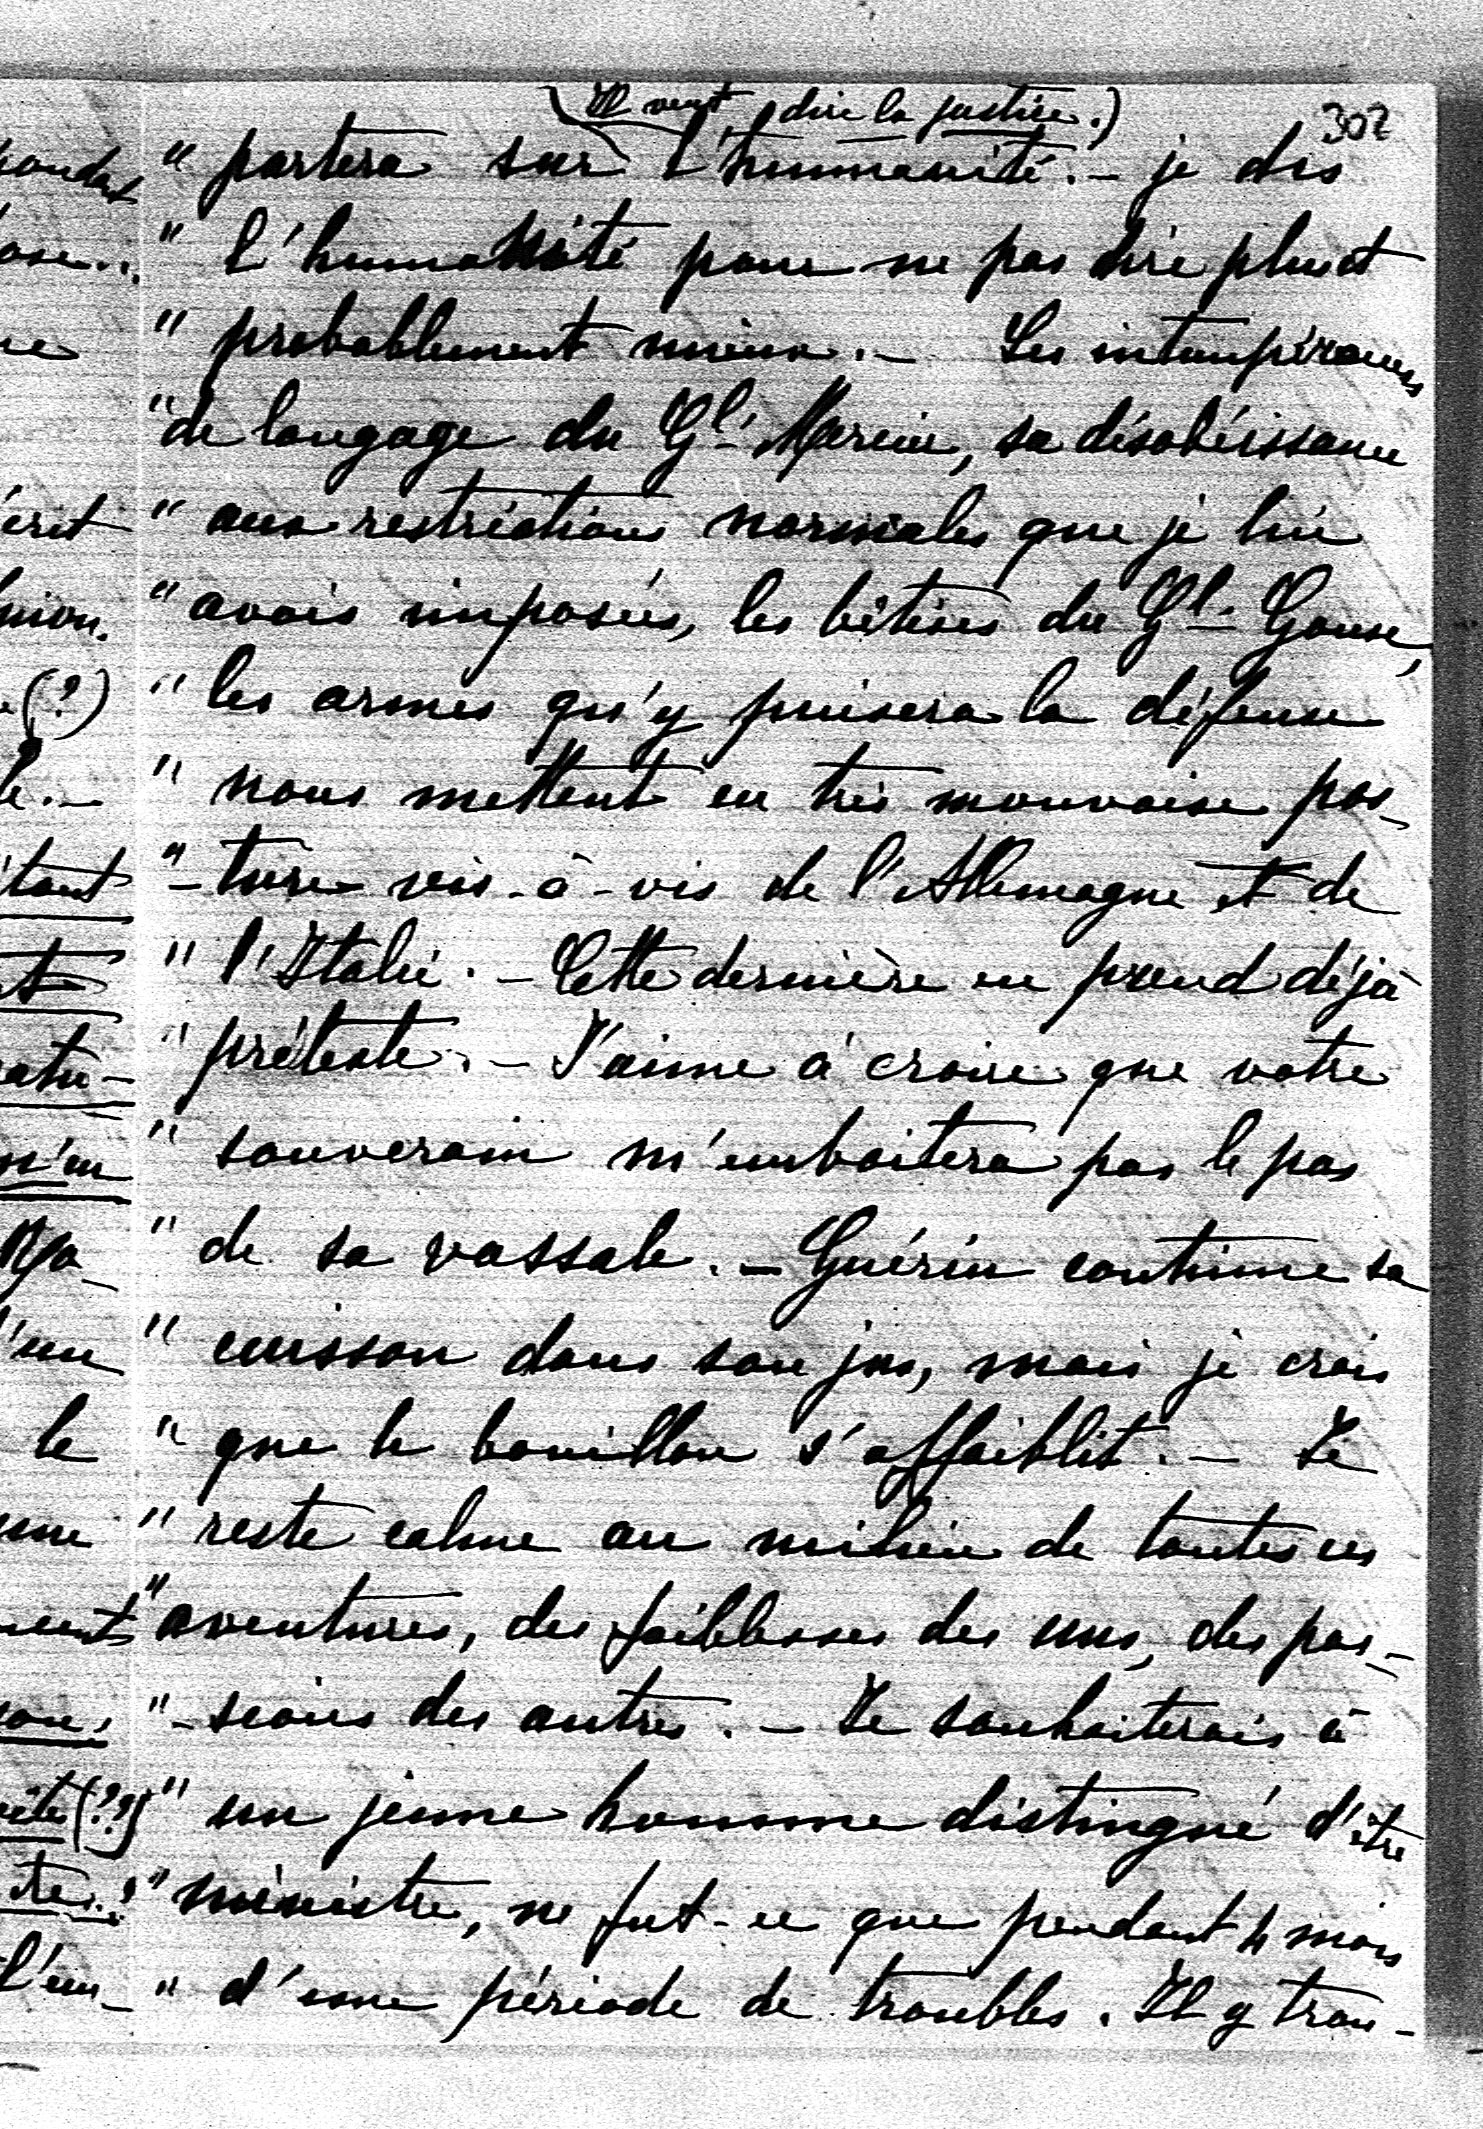 302
(Il veut dire la justice.)
" portera sur l'humanité. – je dis
" l'humanité pour ne pas dire plus et
" probablement mieux. – Les intempérances
" de langage du Gl. Mercier, sa désobéissance
" aux restrictions normales que je lui
" avais imposées, les bêtises du Gl. Gonse,
" les armes qu'y puisera la défense
" nous mettent en très mauvaise pos-
" -ture vis-à-vis de l'Allemagne et de
" l'Italie. – Cette dernière en prend déjà
" prétexte. – J'aime à croire que votre
" souverain n'emboitera pas le pas
" de sa vassale. – Guérin continue sa
" cuisson dans son jus, mais je crois
" que le bouillon s'affaiblit. – Je
" reste calme au milieu de toutes ces
" aventures, des faiblesses des uns, des pas-
" -sions des autres. – Je souhaiterais à
" un jeune homme distingué d'être
" ministre, ne fut-ce que pendant 4 mois
" d'une période de troubles. Il y trou-